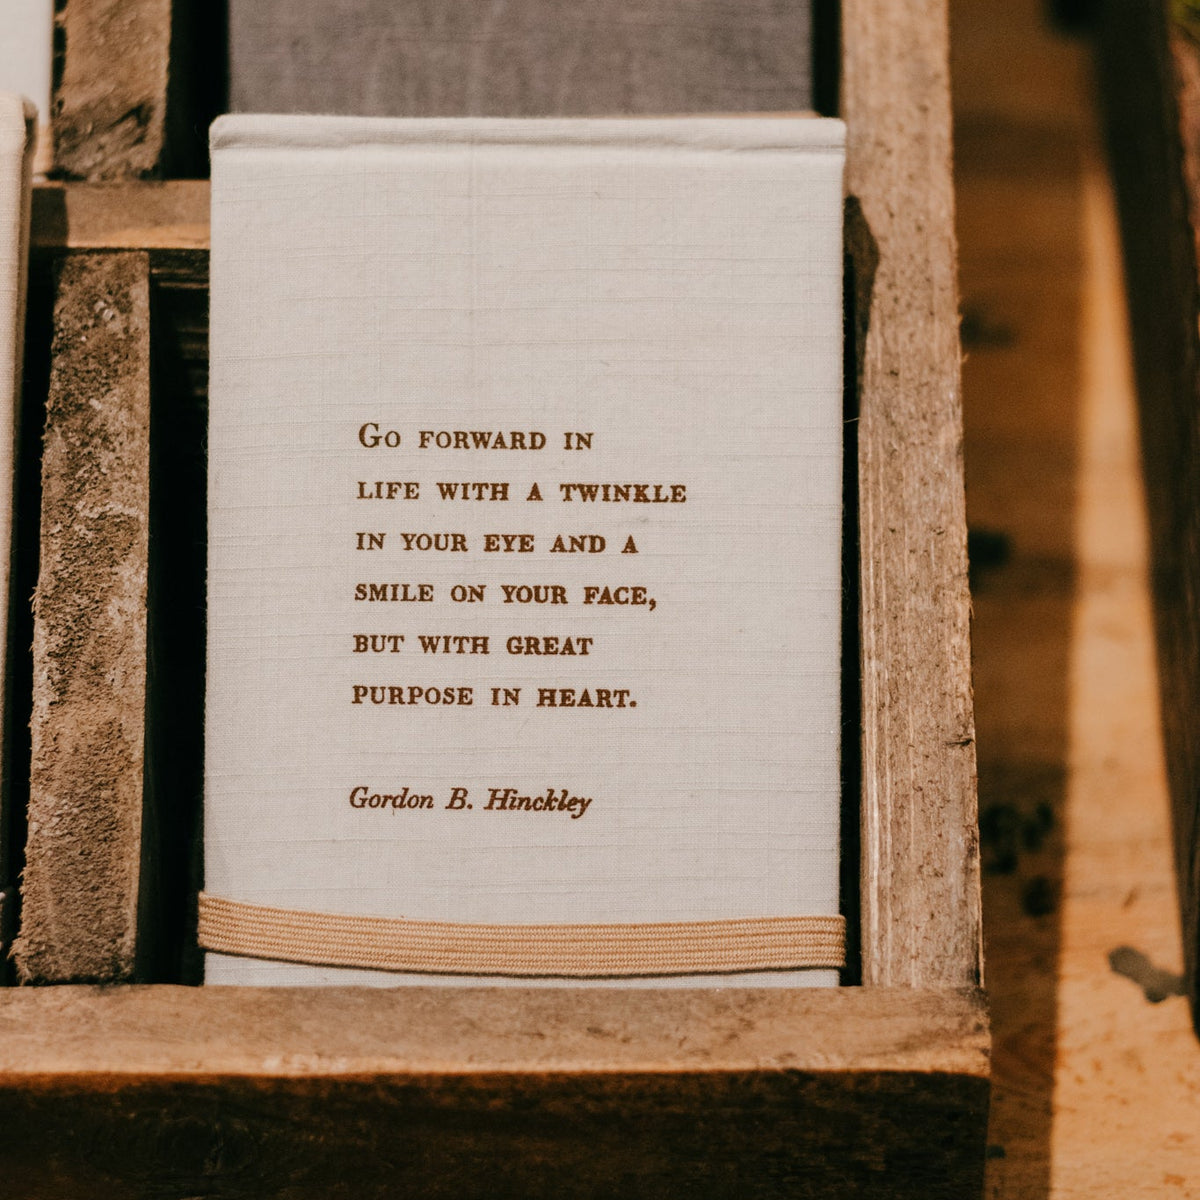 Go forward in
life with a twinkle
in your eye and a
smile on your face,
but with great
purpose in heart.
Gordon B. Hinckley